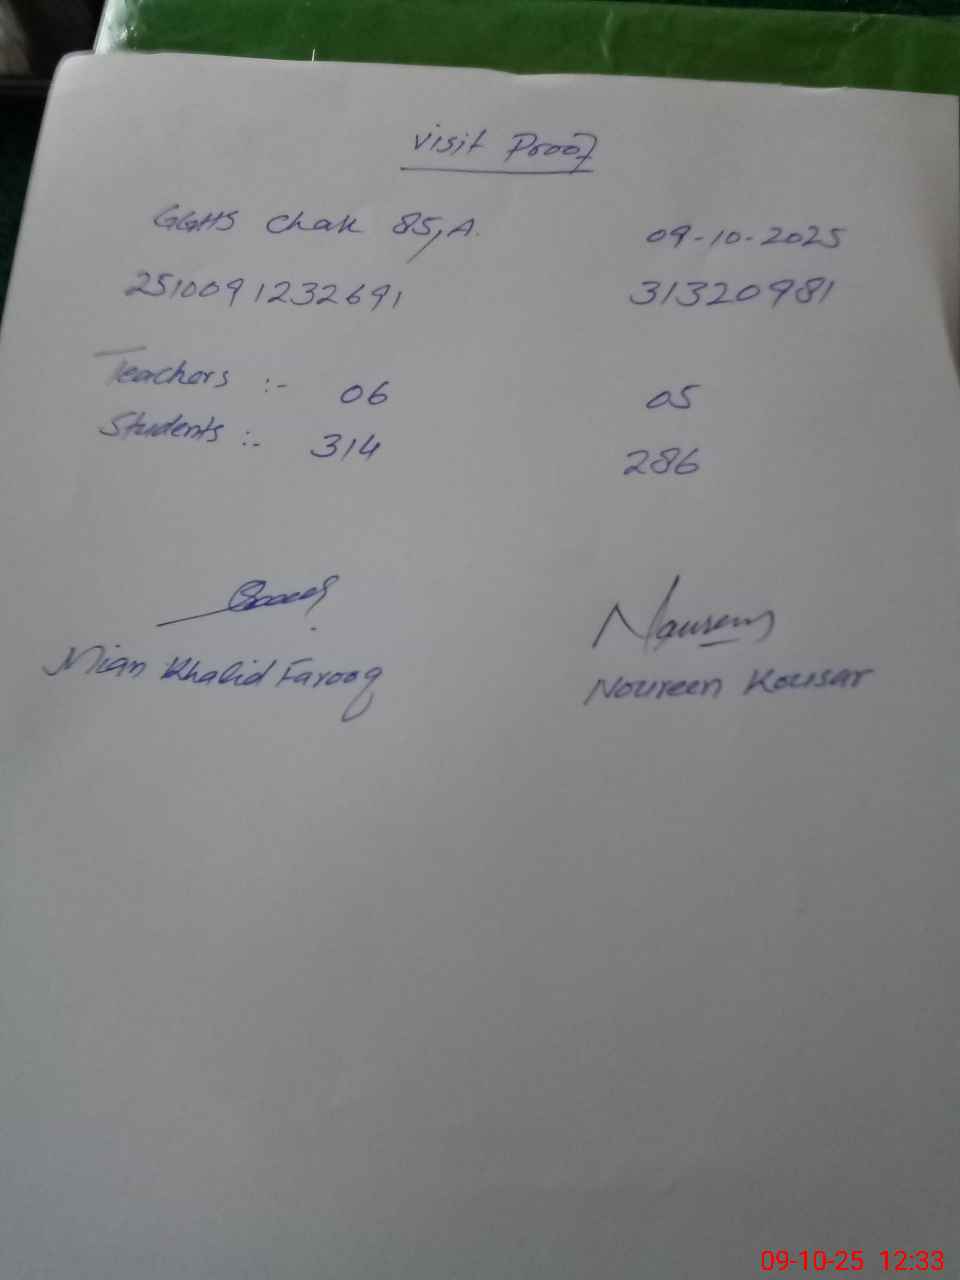 Visit Proof
GGHS Chak 85/A.
09-10-2025
2510091232691
31320981
Teachers :- 06 05
Students :- 314 286
Noureen
Mian Khalid Farooq
Noureen Kousar
09-10-25 12:33